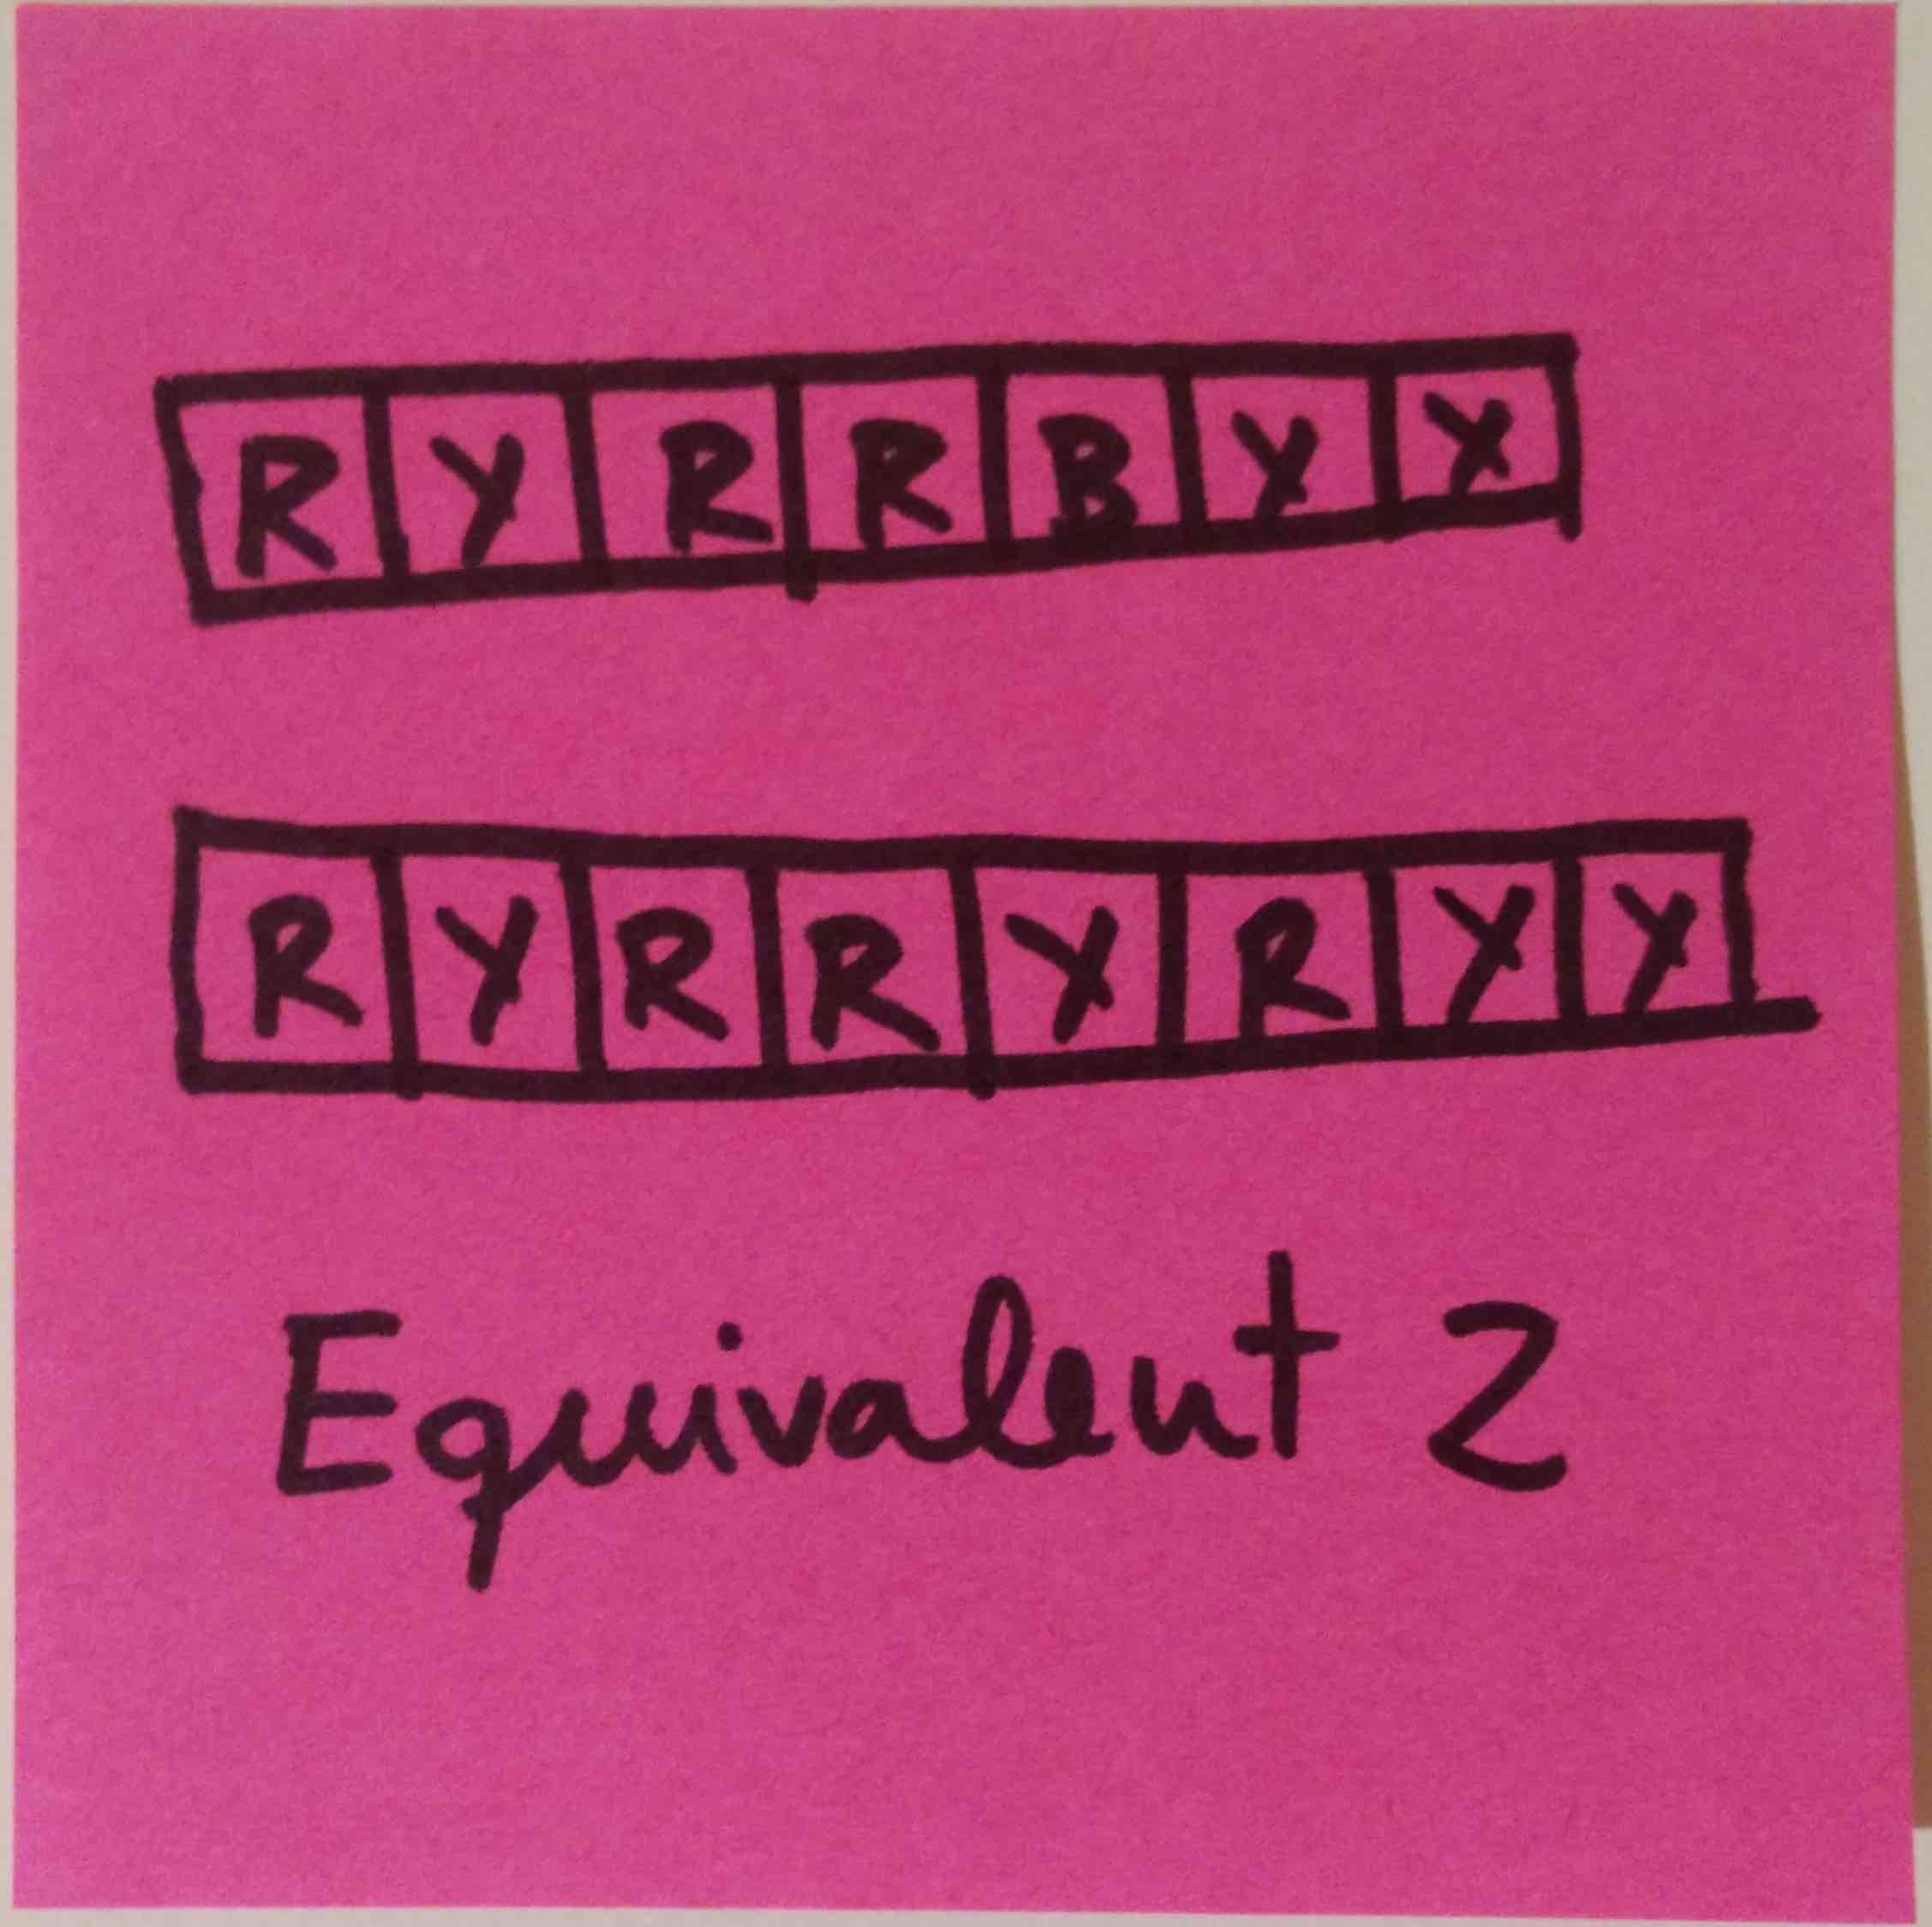 R Y R R B Y Y
R Y R R Y R Y Y
Equivalent 2